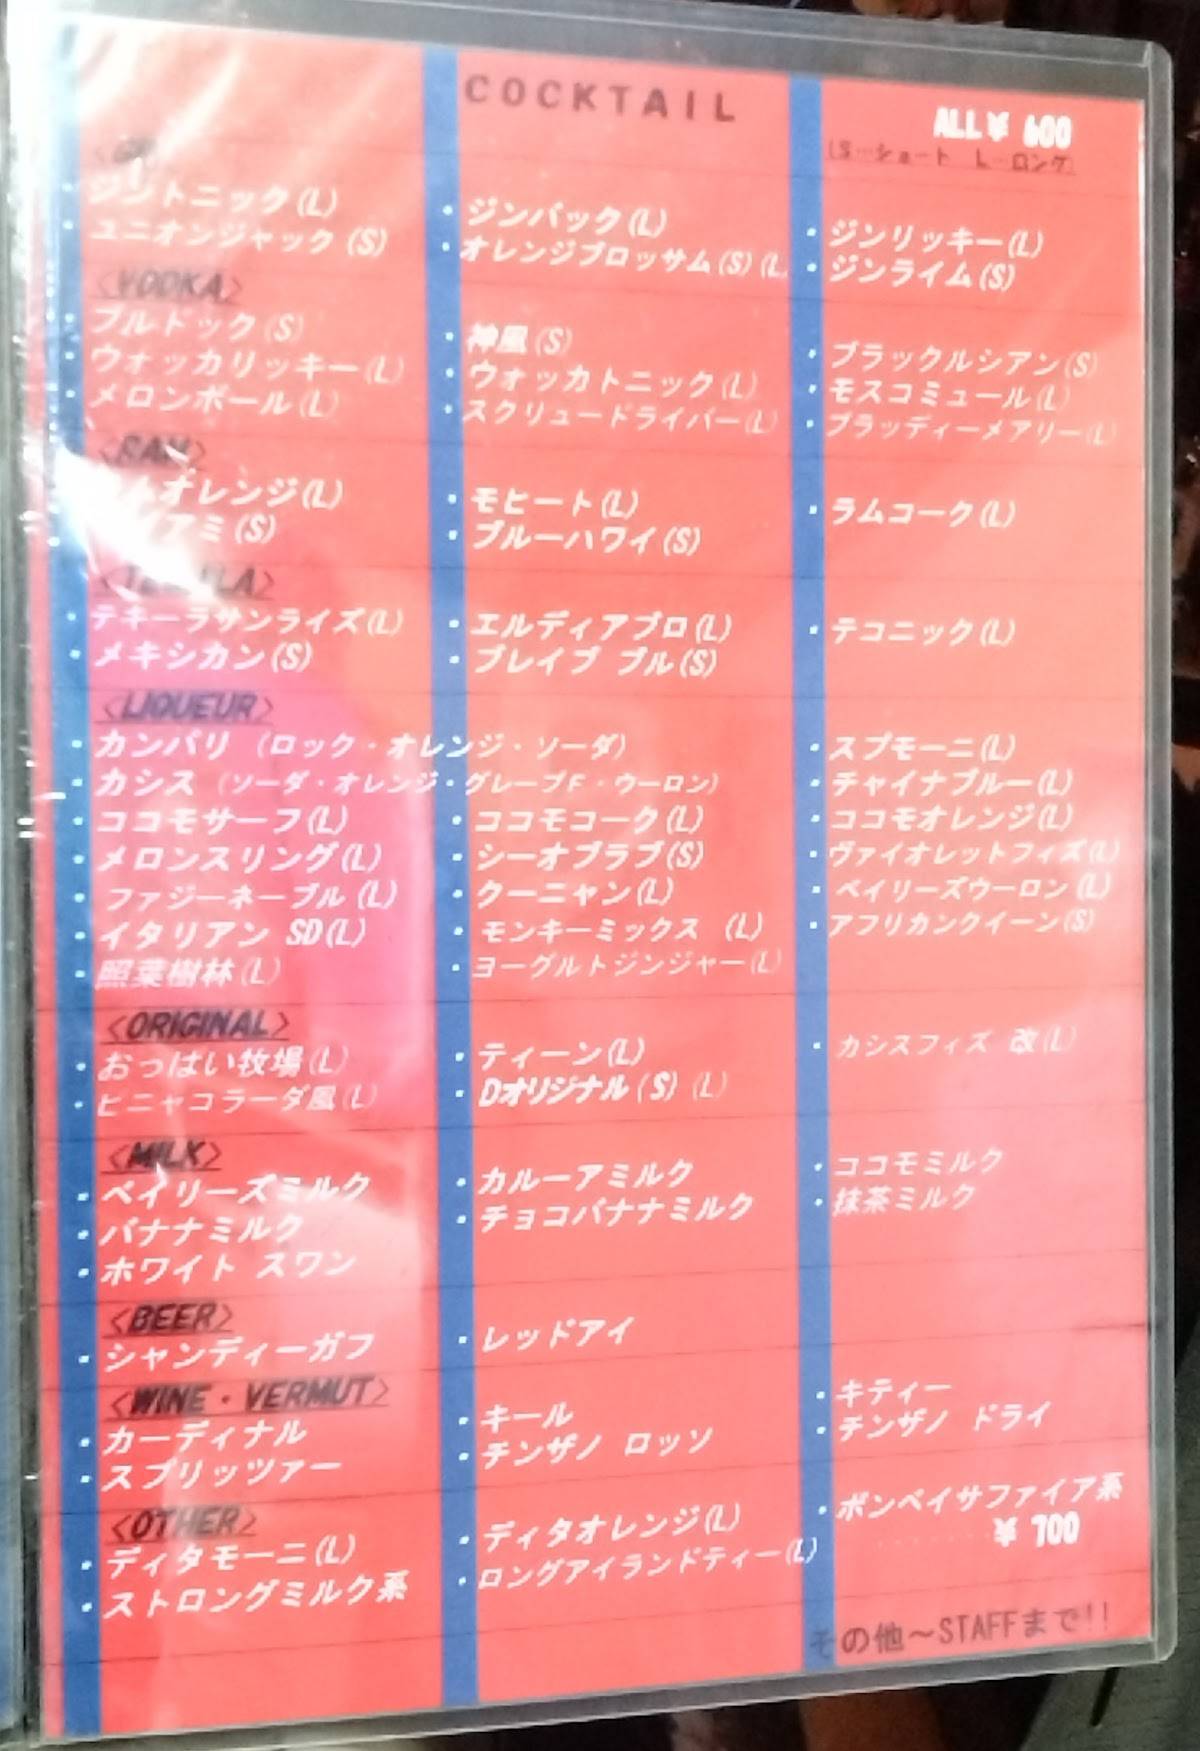 COCKTAIL
ALL¥ 600
(S…ショート L…ロング)
・ジントニック(L) ・ジンバック(L) ・ジンリッキー(L)
・ユニオンジャック(S) ・オレンジブロッサム(S)(L) ・ジンライム(S)
<VODKA>
・ブルドック(S) ・神風(S) ・ブラックルシアン(S)
・ウォッカリッキー(L) ・ウォッカトニック(L) ・モスコミュール(L)
・メロンボール(L) ・スクリュードライバー(L) ・ブラッディーメアリー(L)
<RAM>
オレンジ(L) ・モヒート(L) ・ラムコーク(L)
アミ(S) ・ブルーハワイ(S)
・テキーラサンライズ(L) ・エルディアブロ(L) ・テコニック(L)
・メキシカン(S) ・ブレイブ ブル(S)
<LIQUEUR>
・カンパリ (ロック・オレンジ・ソーダ) ・スプモーニ(L)
・カシス (ソーダ・オレンジ・グレープF・ウーロン) ・チャイナブルー(L)
・ココモサーフ(L) ・ココモコーク(L) ・ココモオレンジ(L)
・メロンスリング(L) ・シーオブラブ(S) ・ヴァイオレットフィズ(L)
・ファジーネーブル(L) ・クーニャン(L) ・ベイリーズウーロン(L)
・イタリアン SD(L) ・モンキーミックス (L) ・アフリカンクイーン(S)
・照葉樹林(L) ・ヨーグルトジンジャー(L)
<ORIGINAL>
・おっぱい牧場(L) ・ティーン(L) ・カシスフィズ 改(L)
・ピニャコラーダ風(L) ・Dオリジナル(S)(L)
<MILK>
・ベイリーズミルク ・カルーアミルク ・ココモミルク
・バナナミルク ・チョコバナナミルク ・抹茶ミルク
・ホワイト スワン
<BEER>
・シャンディーガフ ・レッドアイ
<WINE・VERMUT>
・カーディナル ・キール ・キティー
・スプリッツァー ・チンザノ ロッソ ・チンザノ ドライ
<OTHER>
・ディタモーニ(L) ・ディタオレンジ(L) ・ボンベイサファイア系
・ストロングミルク系 ・ロングアイランドティー(L) ......¥ 700
その他～STAFFまで!!